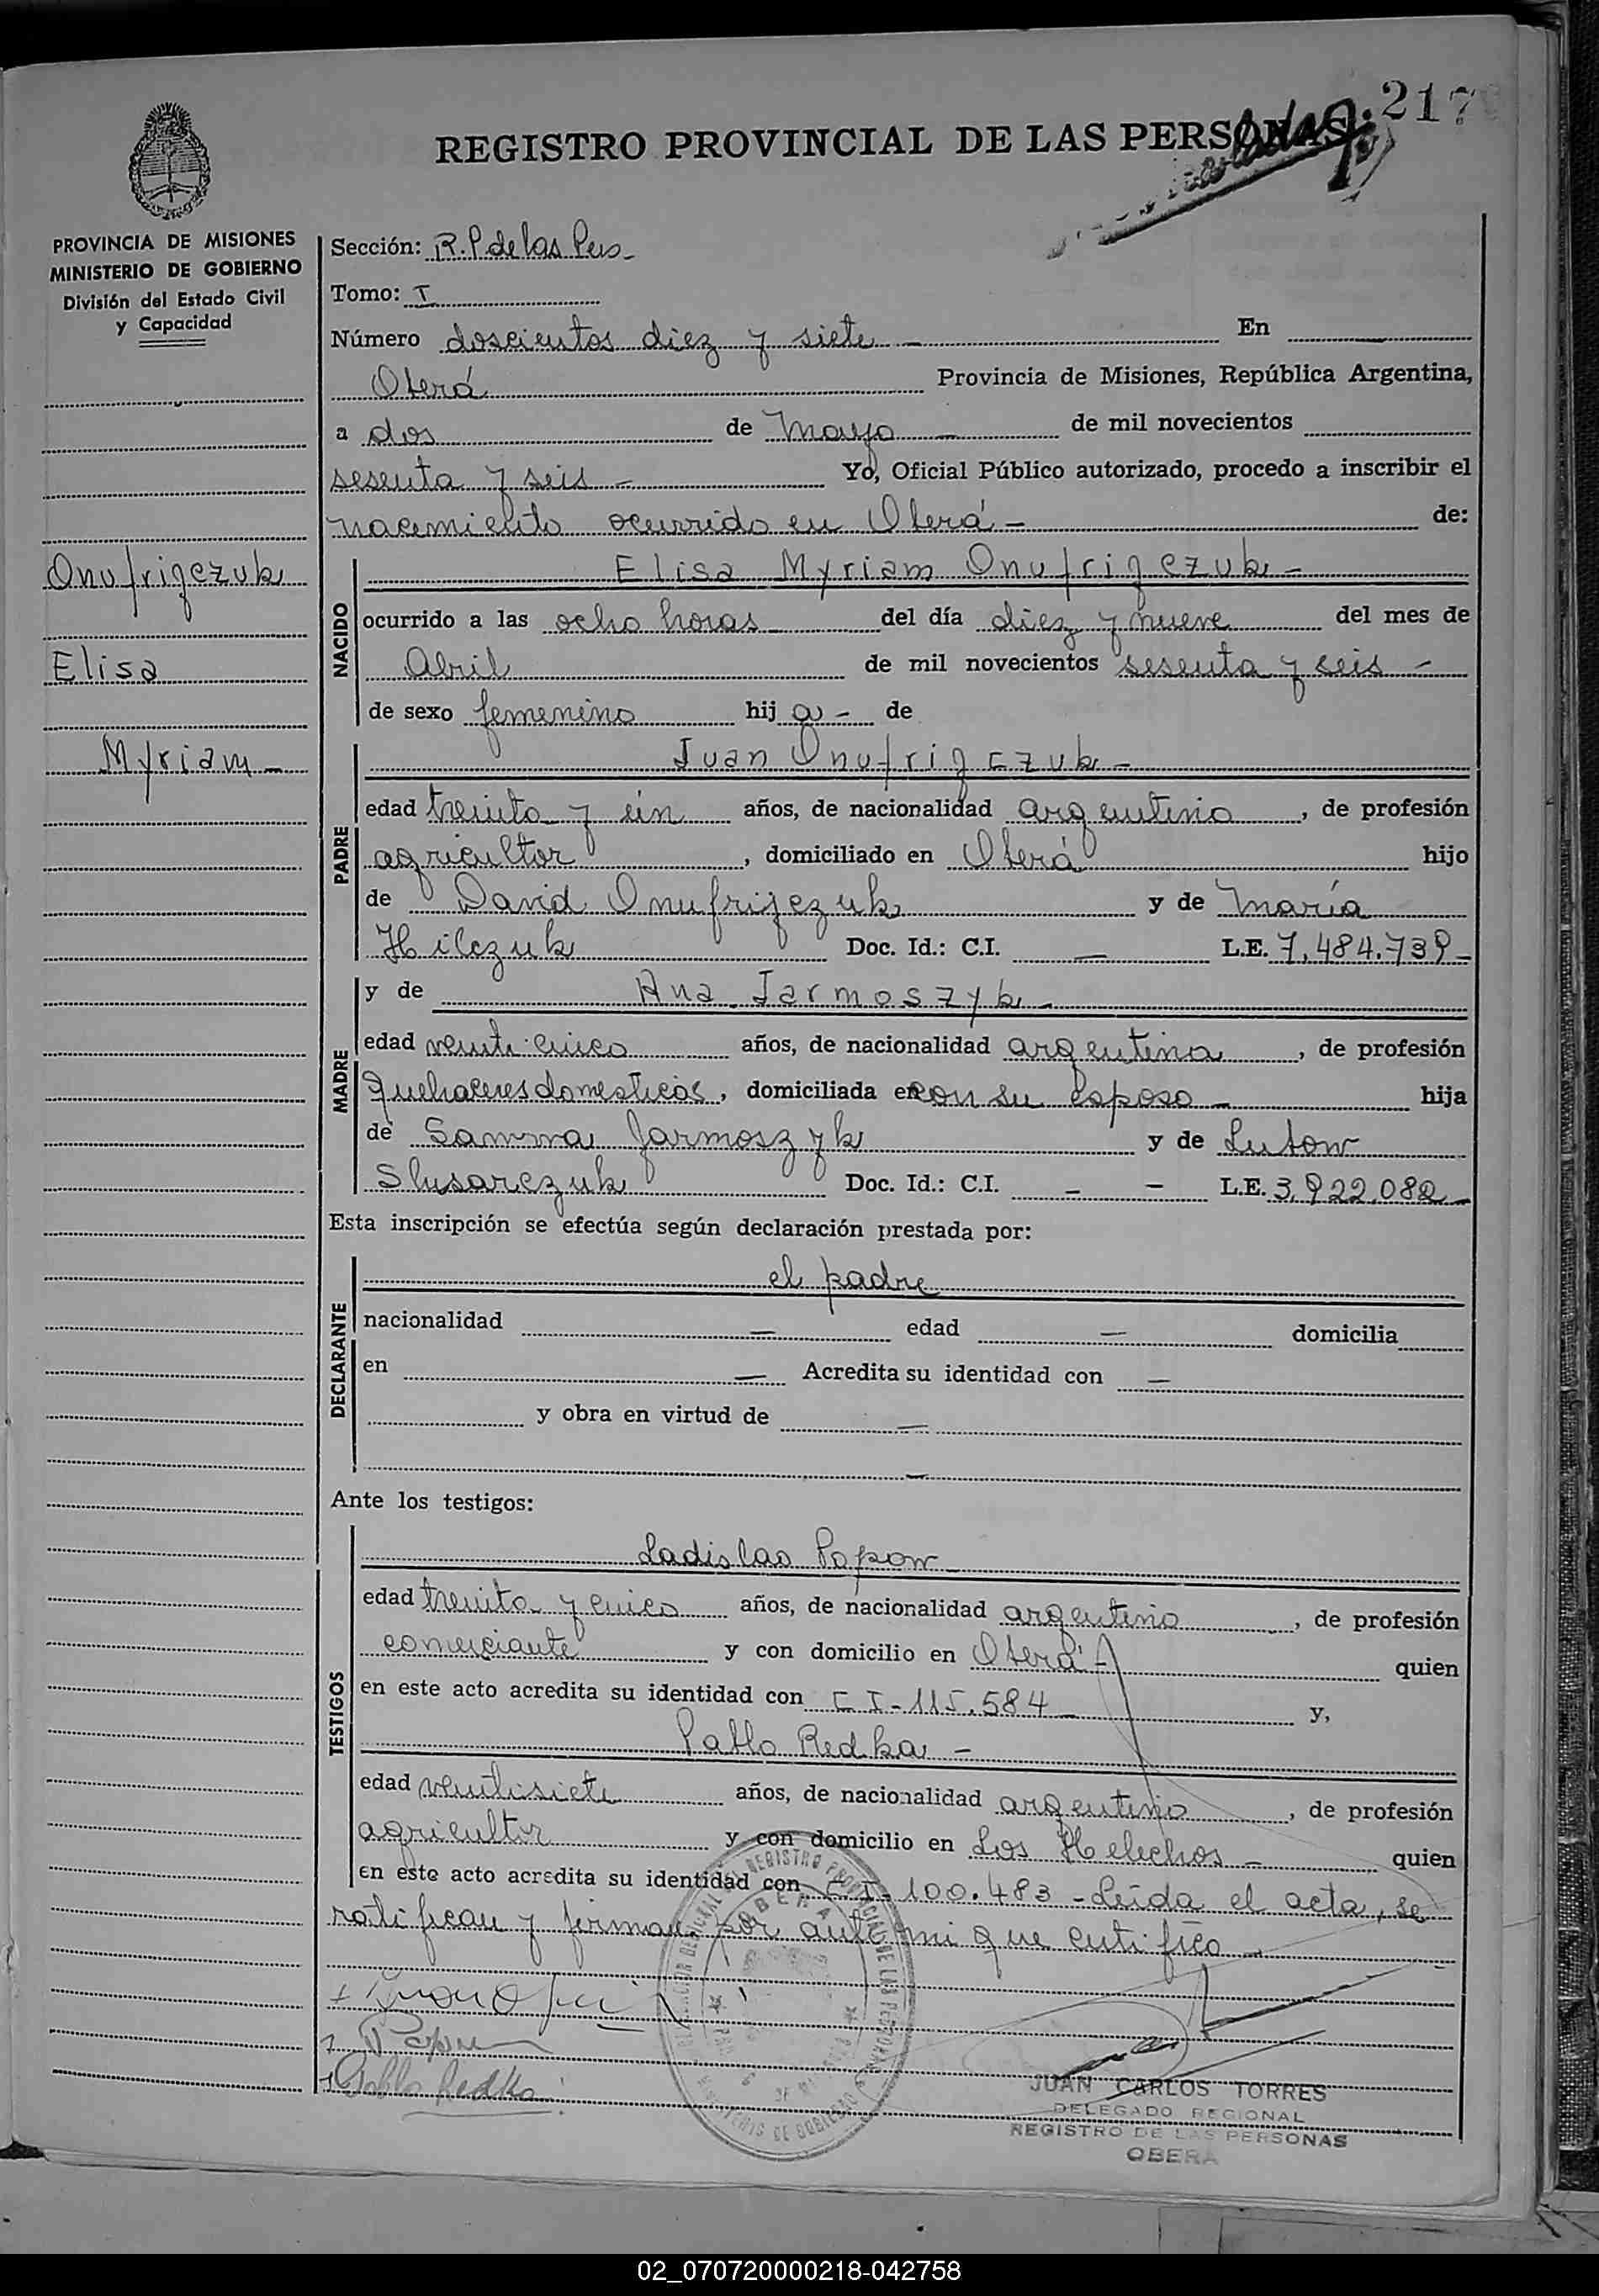 217
REGISTRO PROVINCIAL DE LAS PERSONAS
PROVINCIA DE MISIONES
MINISTERIO DE GOBIERNO
División del Estado Civil
y Capacidad
Sección: R.P de las Pers
Tomo: I
Número doscientos diez y siete — En
Oberá Provincia de Misiones, República Argentina,
a dos de Mayo — de mil novecientos
sesenta y seis — Yo, Oficial Público autorizado, procedo a inscribir el
nacimiento ocurrido en Oberá — de:
Onufrijczuk
Elisa
Myriam —
NACIDO
Elisa Myriam Onufrijczuk —
ocurrido a las ocho horas del día diez y nueve del mes de
Abril de mil novecientos sesenta y seis —
de sexo femenino hij a — de
PADRE
Juan Onufrijczuk —
edad treinta y un años, de nacionalidad argentino, de profesión
agricultor, domiciliado en Oberá hijo
de David Onufrijczuk y de María
Hilczuk Doc. Id.: C.I. — L.E. 7.484.739 —
MADRE
y de Ana Jarmoszyk —
edad veinti cinco años, de nacionalidad argentina, de profesión
quehaceres domesticos, domiciliada en con su esposo — hija
de Samma Jarmoszyk y de Lutow
Slusarczuk Doc. Id.: C.I. — — L.E. 3.922.082 —
Esta inscripción se efectúa según declaración prestada por:
DECLARANTE
el padre
nacionalidad — edad — domicilia
en — Acredita su identidad con —
y obra en virtud de —
—
Ante los testigos:
TESTIGOS
Ladislao Popow
edad treinta y cinco años, de nacionalidad argentino, de profesión
comerciante y con domicilio en Oberá — quien
en este acto acredita su identidad con C I - 115.584 — y,
Pablo Redka —
edad veintisiete años, de nacionalidad argentino, de profesión
agricultor y con domicilio en Los Helechos — quien
en este acto acredita su identidad con C I - 100.483 - Leida el acta, se
ratifican y firman por ante mi que certifico —
Pablo Redka
JUAN CARLOS TORRES
DELEGADO REGIONAL
REGISTRO DE LAS PERSONAS
OBERA
02_070720000218-042758